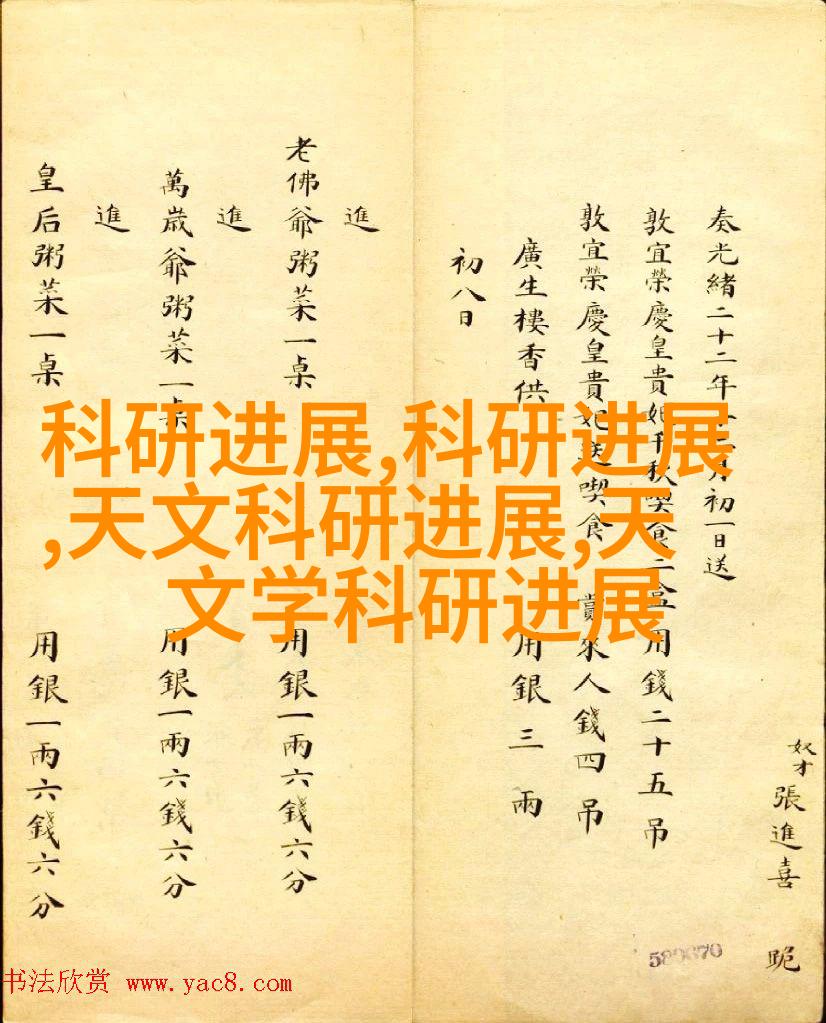 奴才張進喜 跪
奏光緒二十二年十二月初一日送
敦宜榮慶皇貴妃千秋喫食二盒 用錢二十五吊
敦宜榮慶皇貴妃送喫食 賞來人錢四吊
廣生樓香供 用銀三兩
初八日
進
老佛爺粥菜一桌 用銀一兩六錢六分
進
萬歲爺粥菜一桌 用銀一兩六錢六分
進
皇后粥菜一桌 用銀一兩六錢六分
科研进展,科研进展
,天文科研进展,天
文学科研进展
书法欣赏 www.yac8.com